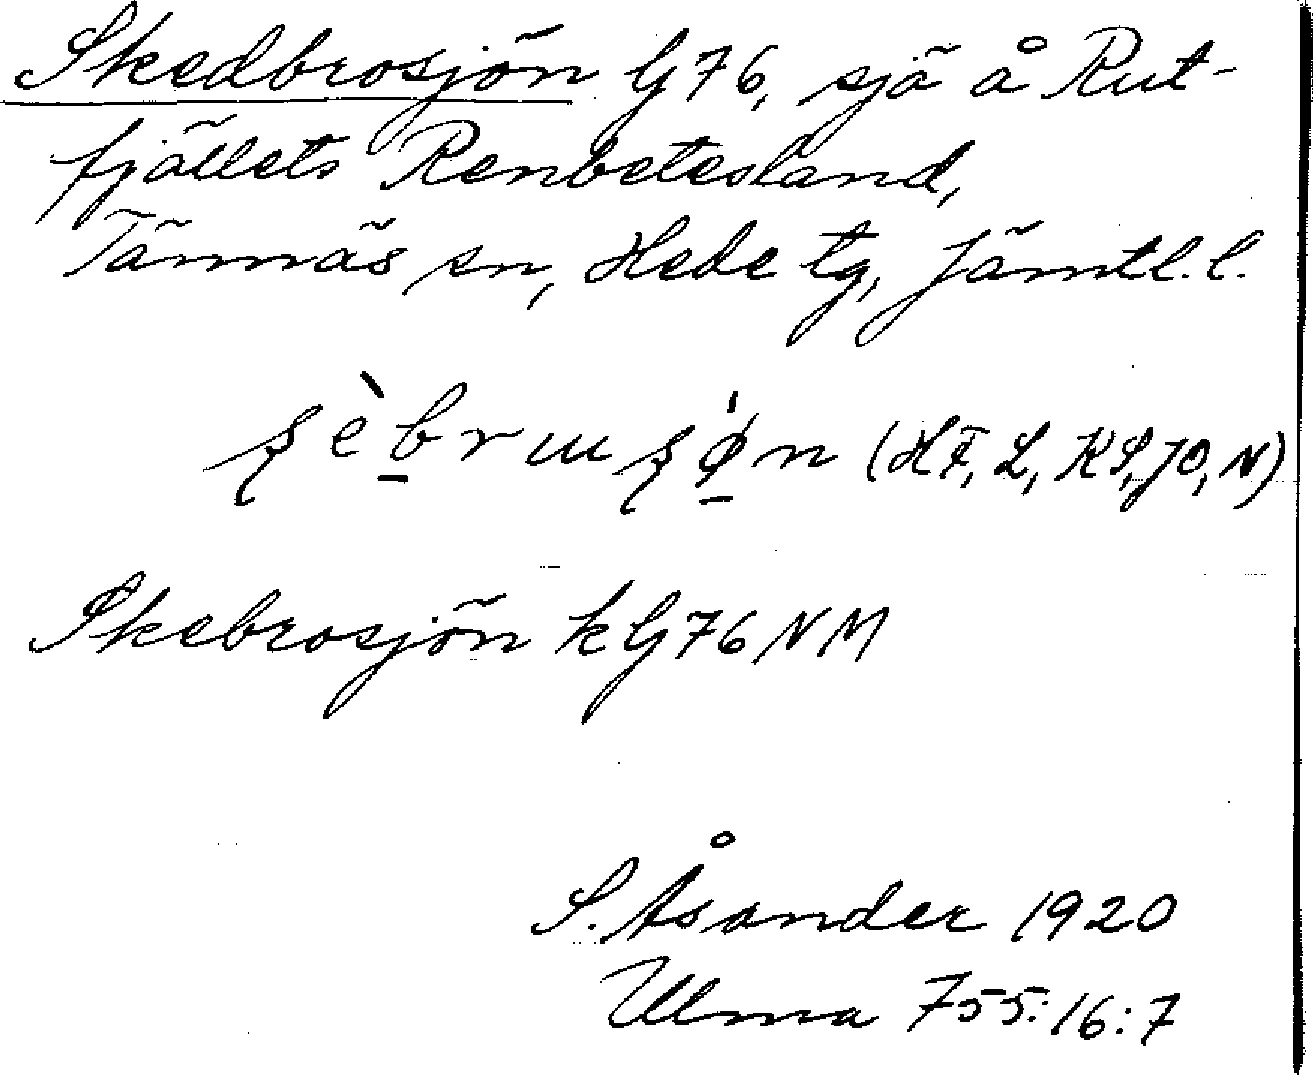 Skedbrosjön G76, sjö å Rut-
fjällets Renbetesland,
Tännäs sn, Hede tg, Jämtl. l.
(HF, L, KS, JO, N)
Skebrosjön k G76 NM
S. Åsander 1920
Ulma 755:16:7